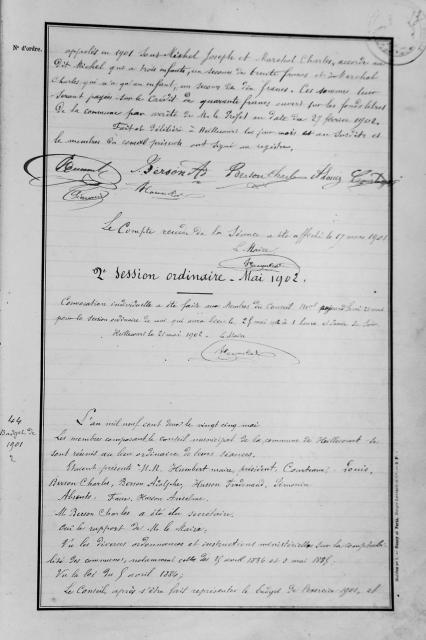 N° d'ordre.
appelés en 1901 sont Michel Joseph et Maréchal Charles, accorde au
Dit Michel que a trois enfants, un secours de trente francs et à Maréchal
Charles, qui n'a qu'un enfant, un secours de dix francs. Ces sommes leur
seront payées sur le crédit de quarante francs ouvert sur les fonds libres
de la commune par arrêté de M. le Préfet en date du 27 février 1902.
Fait et délibéré à les jour, mois et an susdits et
les membres du conseil présents ont signé au registre,
Berson Ad Berson Charles
Le Compte rendu de la Séance a été affiché le 17 mars 1901
Le Maire
2e Session ordinaire - Mai 1902.
Convocation individuelle a été faite aux Membres du Conseil
pour la session ordinaire de mai qui aura lieu le 25 mai 1902 à 1 heure
le 21 mai 1902. Le Maire
44
Budget de
1901
2
L'an mil neuf cent deux le vingt cinq mai
Les membres composant le conseil municipal de la commune de se
sont réunis au lieu ordinaire de leurs séances.
Etaient présents M.M. Humbert maire, président, Louis,
Berson Charles, Berson Adolphe, Husson Ferdinand,
Absents. Husson Anselme.
M. Berson Charles a été élu secrétaire.
Ouï le rapport de M. le Maire,
Vu les diverses ordonnances et instructions ministérielles sur la comptabi-
lité des communes, notamment celles des avril 1836 et
Vu la loi du 5 avril 1884;
Le Conseil après s'être fait représenter le budget de l'exercice 1901, et